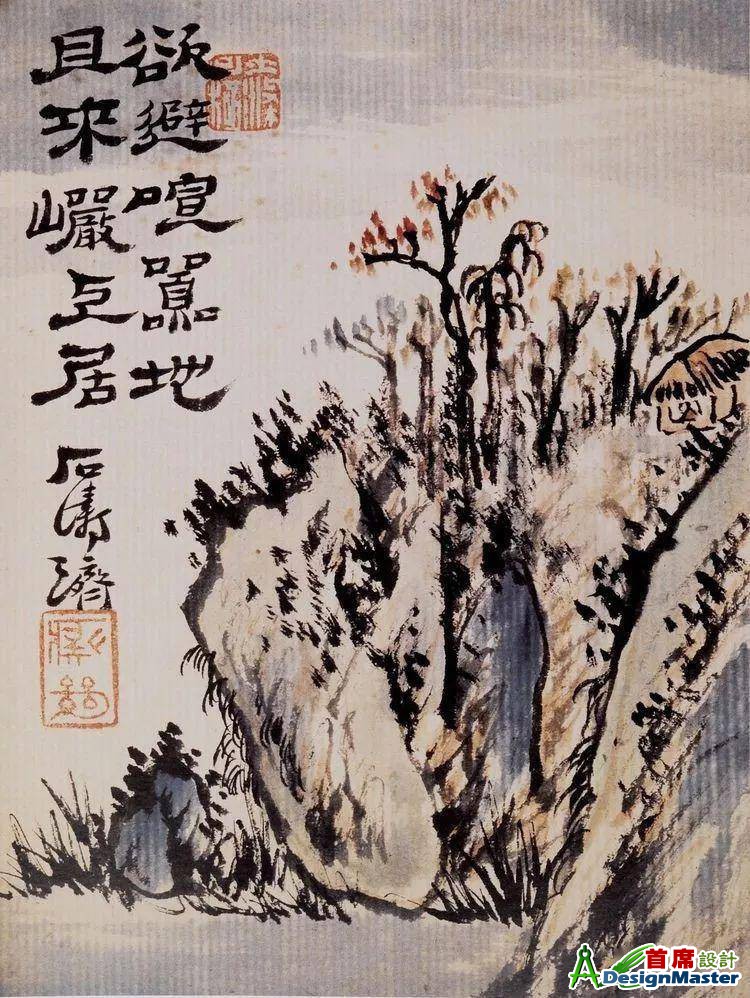 欲避喧囂地
且來巖上居
石濤濟
首席設計
DesignMaster